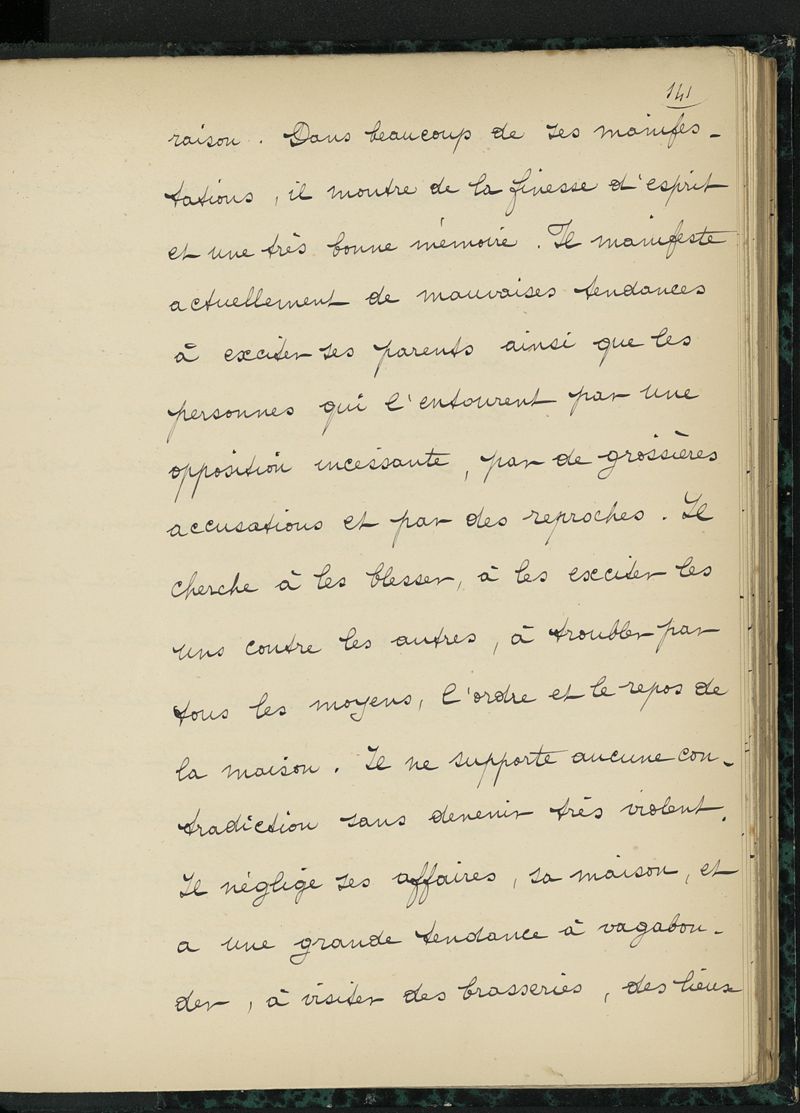 141
raison. Dans beaucoup de ses manifes-
tations, il montre de la finesse d'esprit
et une très bonne mémoire. Il manifeste
actuellement de mauvaises tendances
à exciter ses parents ainsi que les
personnes qui l'entourent par une
opposition incessante, par de grossières
accusations et par des reproches. Il
cherche à les blesser, à les exciter les
uns contre les autres, à troubler par
tous les moyens, l'ordre et le repos de
la maison. Il ne supporte aucune con-
tradiction sans devenir très violent.
Il néglige ses affaires, sa maison, et
a une grande tendance à vagabon-
der, à visiter des brasseries, des lieux